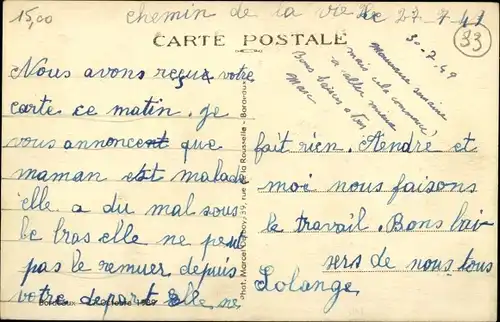 15,00
chemin de la vie le 27-7-49
33
CARTE POSTALE
30-7-49
Mauvaise semaine
mais cela commence
a aller mieux
Bons baisers a tous
Marc
Nous avons reçue votre
carte ce matin. je
vous annoncent que
maman est malade
elle a du mal sous
le bras elle ne peut
pas le remuer depuis
votre depart elle ne
fait rien. Andre et
moi nous faisons
le travail. Bons bai
sers de nous tous
Solange
Phot. Marcel 39, rue de la Rousselle - Bordeaux
Bordeaux octobre